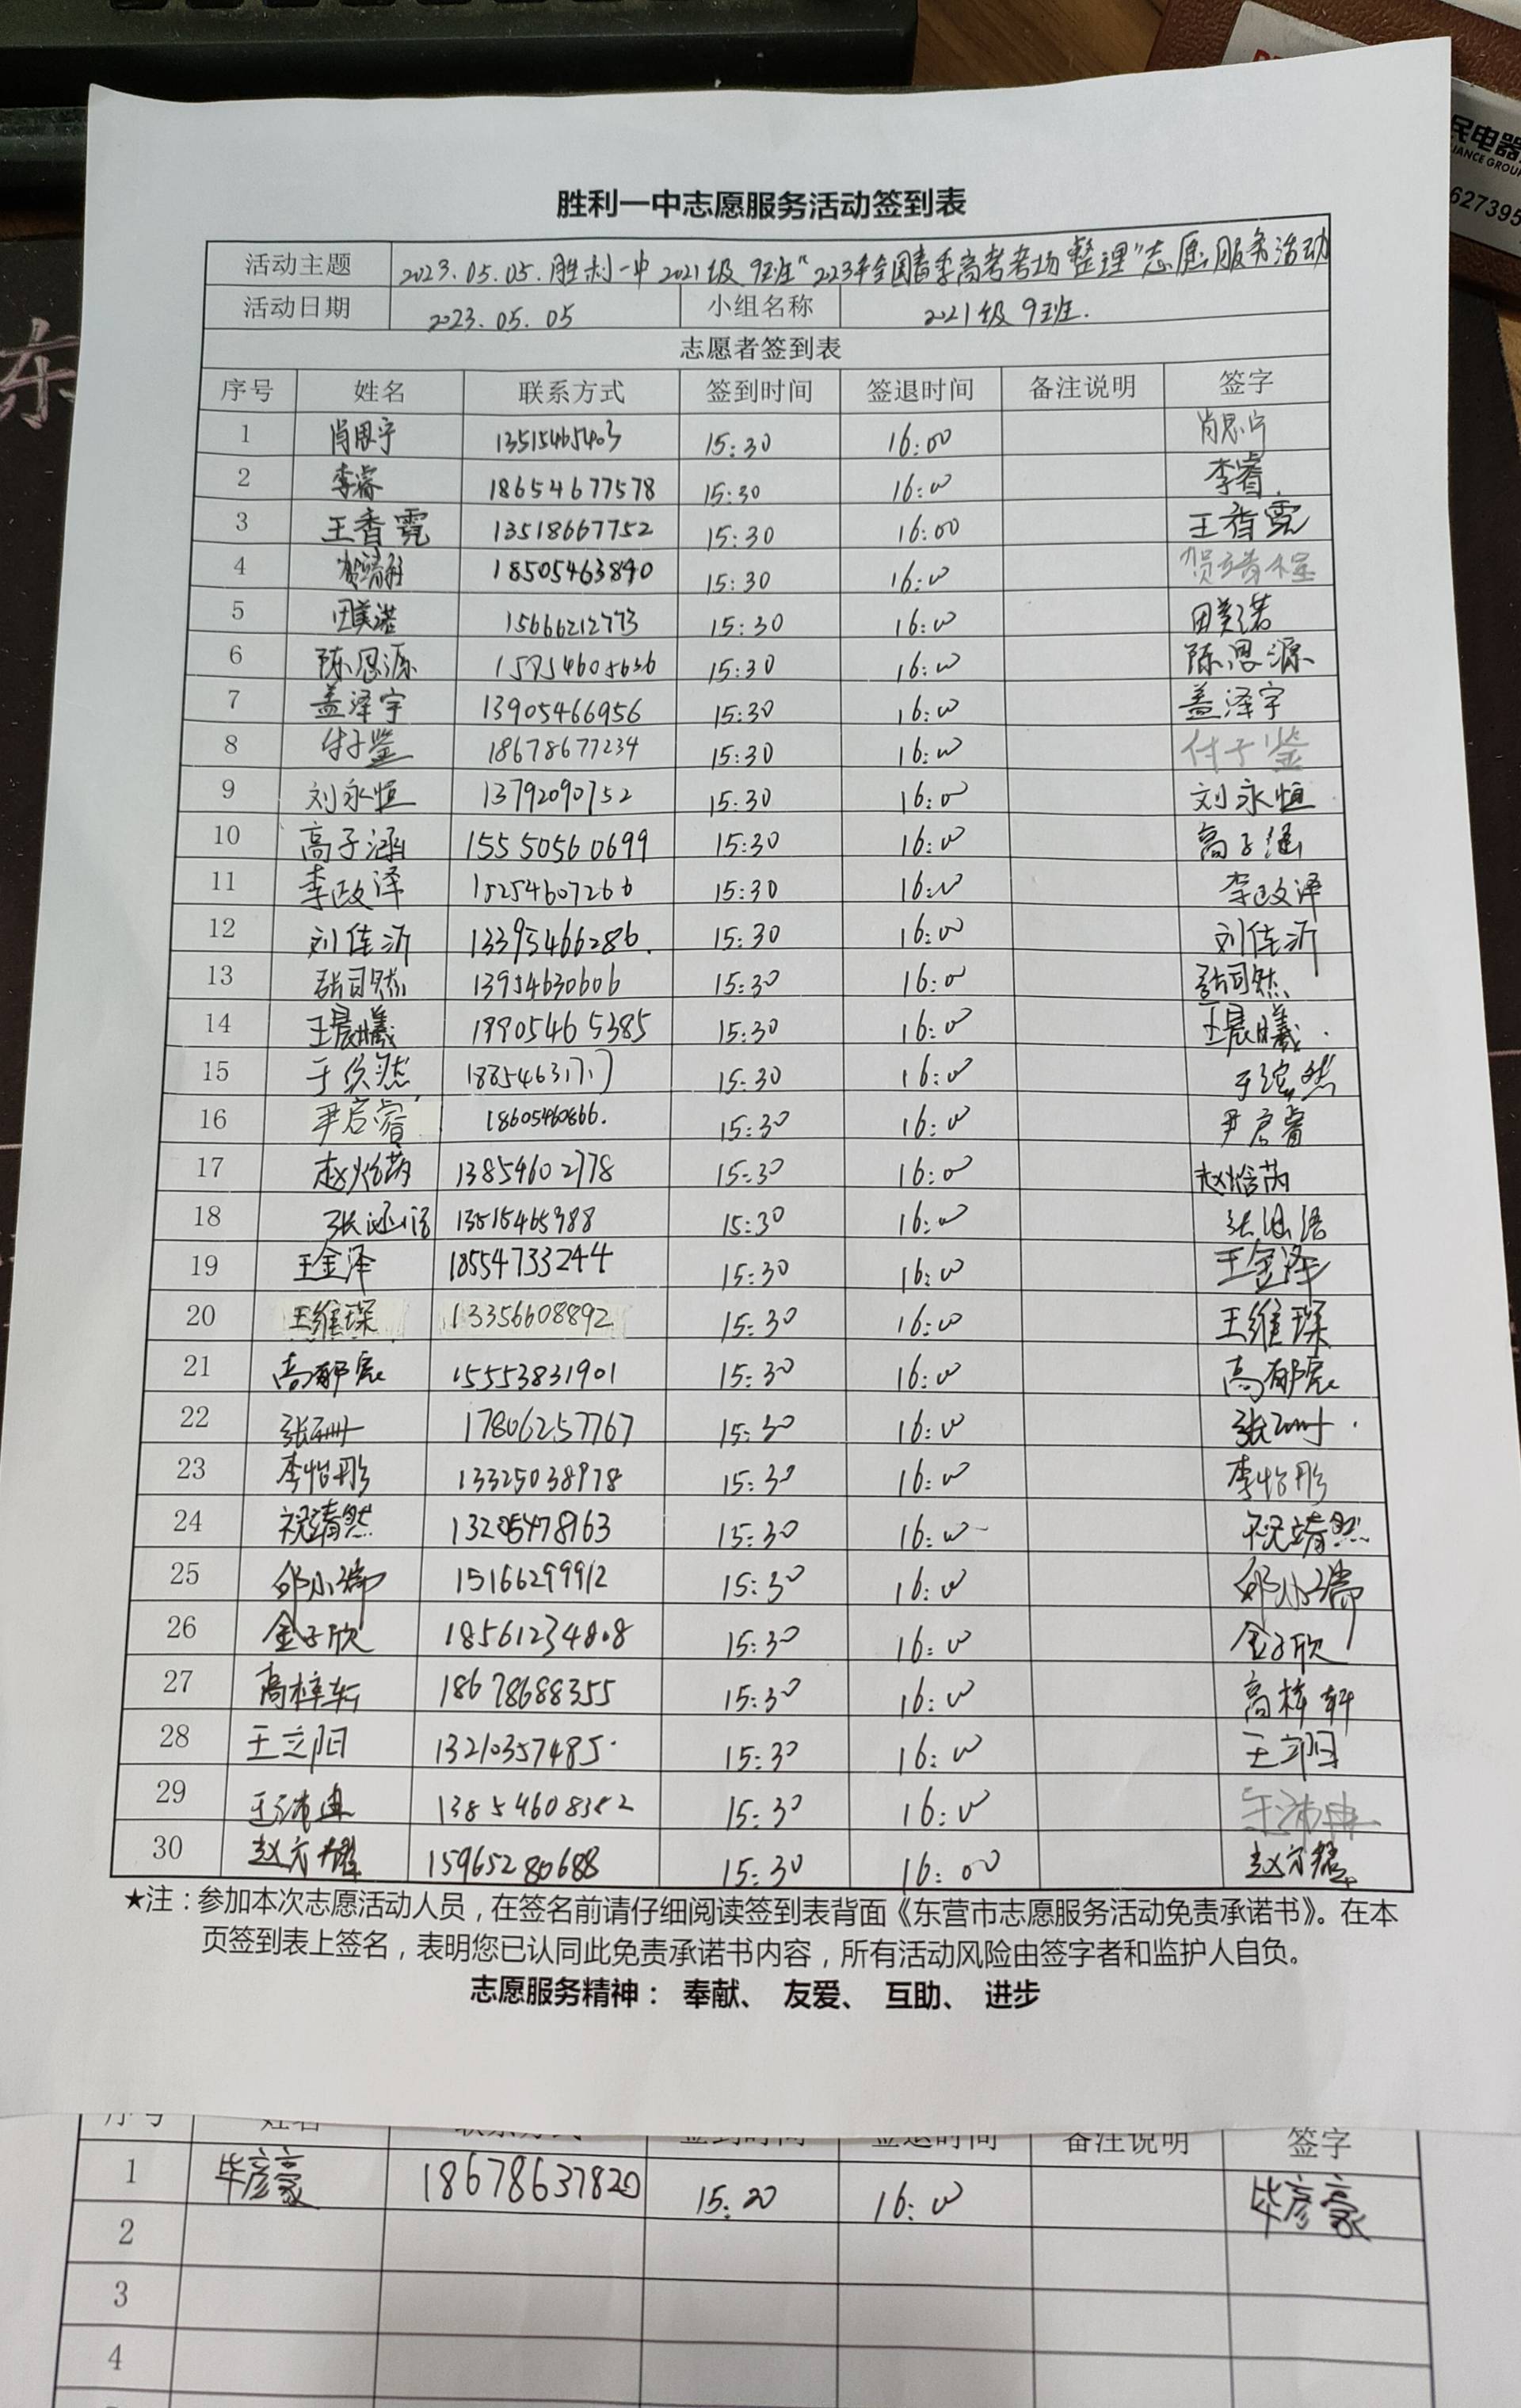 民电器
IANCE GROUP
627395
东
胜利一中志愿服务活动签到表
活动主题 2023.05.05.胜利一中2021级9班"2023年全国春季高考考场整理"志愿服务活动
活动日期 2023.05.05 小组名称 2021级9班.
志愿者签到表
序号 姓名 联系方式 签到时间 签退时间 备注说明 签字
1 肖思宁 13515465403 15:30 16:00 肖思宁
2 李睿 18654677578 15:30 16:00 李睿
3 王香霓 13518667752 15:30 16:00 王香霓
4 贺靖程 18505463890 15:30 16:00 贺靖程
5 田美诺 15666212773 15:30 16:00 田美诺
6 陈思源 15954605636 15:30 16:00 陈思源
7 盖泽宇 13905466956 15:30 16:00 盖泽宇
8 付子鉴 18678677234 15:30 16:00 付子鉴
9 刘永恒 13792090752 15:30 16:00 刘永恒
10 高子涵 15550560699 15:30 16:00 高子涵
11 李政泽 15254607266 15:30 16:00 李政泽
12 刘佳沂 13395466286. 15:30 16:00 刘佳沂
13 张司然 13954630606 15:30 16:00 张司然
14 王晨曦 19905465385 15:30 16:00 王晨曦
15 15:30 16:00
16 尹启睿 18605460866. 15:30 16:00 尹启睿
17 赵怡芮 13854602778 15:30 16:00 赵怡芮
18 张涵语 13515465988 15:30 16:00 张涵语
19 王金泽 18554733244 15:30 16:00 王金泽
20 王维琛 13356608892 15:30 16:00 王维琛
21 高郁宸 15553831901 15:30 16:00 高郁宸
22 张珊 17806257767 15:30 16:00 张珊
23 李怡彤 13325038978 15:30 16:00 李怡彤
24 祝靖然 13205478963 15:30 16:00 祝靖然
25 邱小瑞 15166299912 15:30 16:00 邱小瑞
26 金子欣 18561234808 15:30 16:00 金子欣
27 高梓轩 18678688355 15:30 16:00 高梓轩
28 王立阳 13210357485 15:30 16:00 王立阳
29 王沛冉 13854608382 15:30 16:00 王沛冉
30 赵方耀 15965280688 15:30 16:00 赵方耀
★注：参加本次志愿活动人员，在签名前请仔细阅读签到表背面《东营市志愿服务活动免责承诺书》。在本
页签到表上签名，表明您已认同此免责承诺书内容，所有活动风险由签字者和监护人自负。
志愿服务精神： 奉献、 友爱、 互助、 进步
序号 姓名 联系方式 签到时间 签退时间 备注说明 签字
1 毕彦豪 18678637820 15:20 16:00 毕彦豪
2
3
4